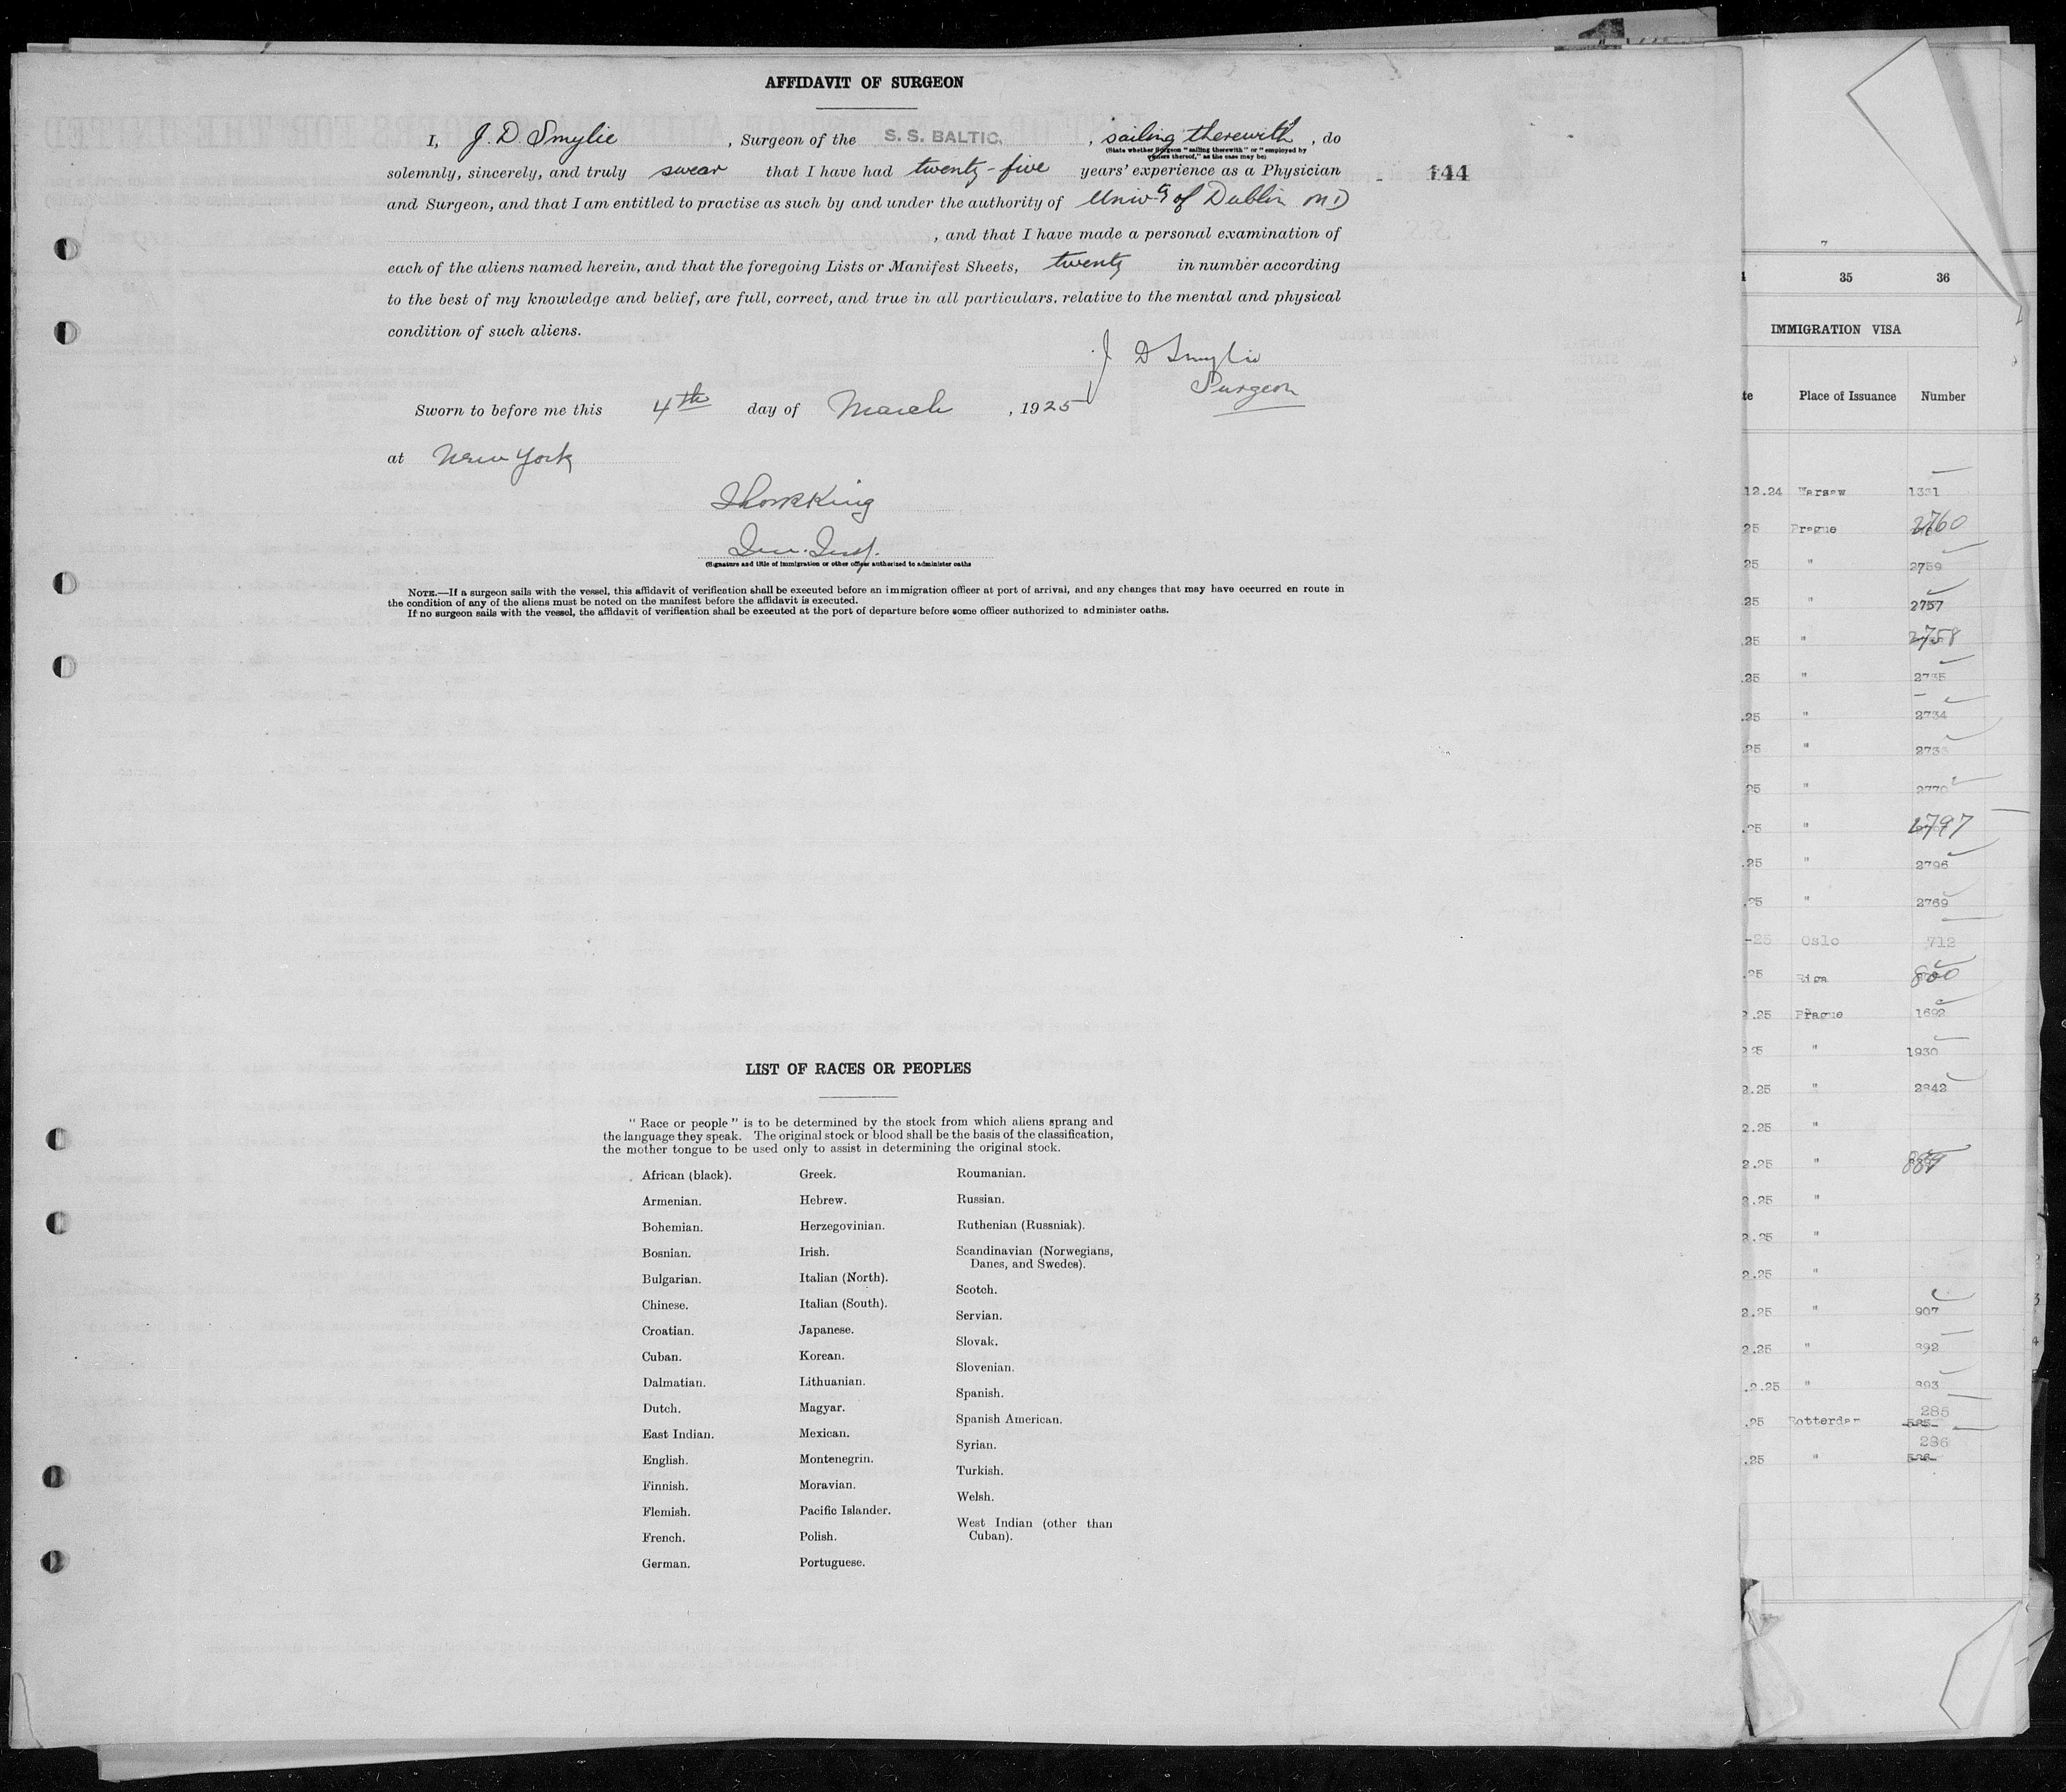 AFFIDAVIT OF SURGEON
I, J. D. Smylie , Surgeon of the S. S. BALTIC. , sailing therewith , do
(State whether Surgeon "sailing therewith" or "employed by
owners thereof," as the case may be)
solemnly, sincerely, and truly swear that I have had twenty-five years' experience as a Physician
144
and Surgeon, and that I am entitled to practise as such by and under the authority of Univ of Dublin MD
, and that I have made a personal examination of
each of the aliens named herein, and that the foregoing Lists or Manifest Sheets, twenty in number according
to the best of my knowledge and belief, are full, correct, and true in all particulars, relative to the mental and physical
condition of such aliens.
J D Smylie
Surgeon
Sworn to before me this 4th day of March , 1925
at New York
King
(Signature and title of immigration or other officer authorized to administer oaths
NOTE.—If a surgeon sails with the vessel, this affidavit of verification shall be executed before an immigration officer at port of arrival, and any changes that may have occurred en route in
the condition of any of the aliens must be noted on the manifest before the affidavit is executed.
If no surgeon sails with the vessel, the affidavit of verification shall be executed at the port of departure before some officer authorized to administer oaths.
LIST OF RACES OR PEOPLES
" Race or people " is to be determined by the stock from which aliens sprang and
the language they speak. The original stock or blood shall be the basis of the classification,
the mother tongue to be used only to assist in determining the original stock.
African (black).
Armenian.
Bohemian.
Bosnian.
Bulgarian.
Chinese.
Croatian.
Cuban.
Dalmatian.
Dutch.
East Indian.
English.
Finnish.
Flemish.
French.
German.
Greek.
Hebrew.
Herzegovinian.
Irish.
Italian (North).
Italian (South).
Japanese.
Korean.
Lithuanian.
Magyar.
Mexican.
Montenegrin.
Moravian.
Pacific Islander.
Polish.
Portuguese.
Roumanian.
Russian.
Ruthenian (Russniak).
Scandinavian (Norwegians,
Danes, and Swedes).
Scotch.
Servian.
Slovak.
Slovenian.
Spanish.
Spanish American.
Syrian.
Turkish.
Welsh.
West Indian (other than
Cuban).
7
35 36
IMMIGRATION VISA
te Place of Issuance Number
12.24 Warsaw 1331
25 Prague 2760
25 " 2759
25 " 2757
25 " 2758
.25 " 2735
.25 " 2734
.25 " 273
25 " 2770
.25 " 2797
.25 " 2796
.25 " 2769
-25 Oslo 712
.25 Riga 800
2.25 Prague 1692
2 25 " 1930
2.25 " 2842
2.25 "
2.25 "
2.25 "
2.25 "
2.25 "
2.25 " 907
2.25 " 892
.2.25 " 893
285
.25 Rotterdam 585
286
.25 " 586